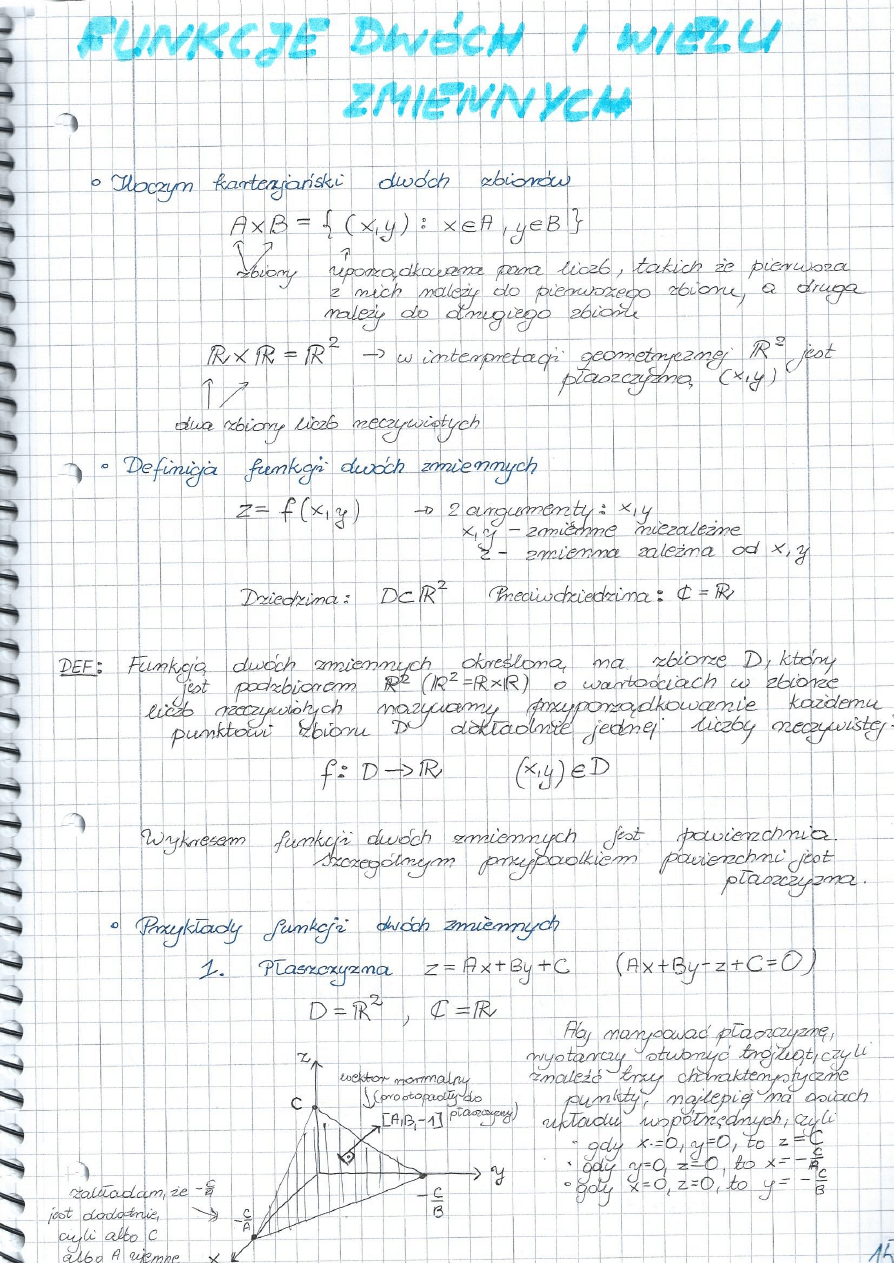 FUNKCJE DWÓCH I WIELU
ZMIENNYCH
• Iloczyn kartezjański dwóch zbiorów
A×B = { (x,y) : x∈A, y∈B }
zbiory uporządkowana para liczb, takich że pierwsza
z nich należy do pierwszego zbioru, a druga
należy do drugiego zbioru
ℝ×ℝ = ℝ² → w interpretacji geometrycznej ℝ² jest
płaszczyzną (x,y)
dwa zbiory liczb rzeczywistych
• Definicja funkcji dwóch zmiennych
z = f(x,y) → 2 argumenty: x,y
x,y – zmienne niezależne
z – zmienna zależna od x,y
Dziedzina: D⊂ℝ² Przeciwdziedzina: ℂ = ℝ
DEF: Funkcją dwóch zmiennych określoną na zbiorze D, który
jest podzbiorem ℝ² (ℝ²=ℝ×ℝ) o wartościach w zbiorze
liczb rzeczywistych nazywamy przyporządkowanie każdemu
punktowi zbioru D dokładnie jednej liczby rzeczywistej:
f: D → ℝ (x,y) ∈ D
Wykresem funkcji dwóch zmiennych jest powierzchnia.
Szczególnym przypadkiem powierzchni jest
płaszczyzna.
• Przykłady funkcji dwóch zmiennych
1. Płaszczyzna z = Ax+By+C (Ax+By-z+C=0)
D = ℝ², ℂ = ℝ
Aby narysować płaszczyznę,
wystarczy stworzyć trójkąt, czyli
znaleźć trzy charakterystyczne
punkty, najlepiej na osiach
układu współrzędnych, czyli
• gdy x=0, y=0, to z=C
• gdy y=0, z=0, to x = -C/A
• gdy x=0, z=0, to y = -C/B
z
wektor normalny
(prostopadły do
płaszczyzny)
[A,B,-1]
C
y
-C/B
-C/A
x
zakładam, że -C/A
jest dodatnie,
czyli albo C
albo A ujemne